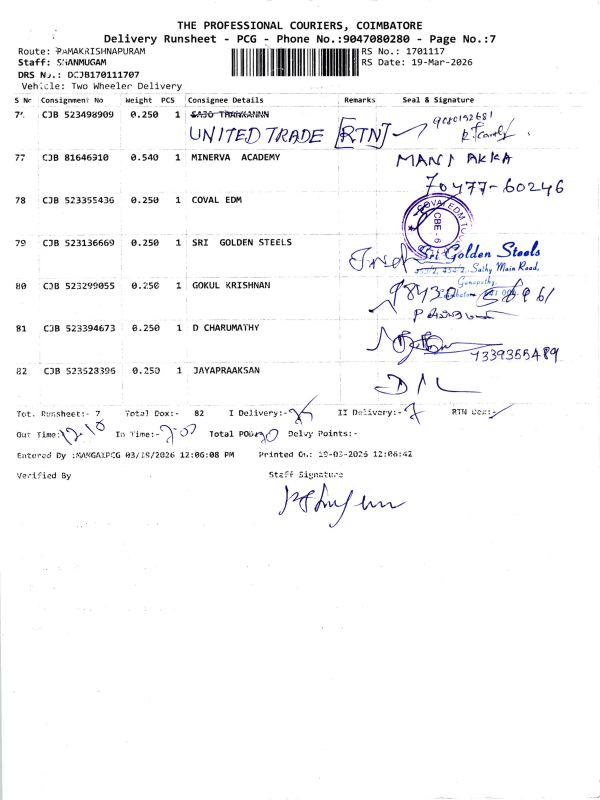 THE PROFESSIONAL COURIERS, COIMBATORE
Delivery Runsheet - PCG - Phone No.:9047080280 - Page No.:7
Route: RAMAKRISHNAPURAM RS No.: 1701117
Staff: SHANMUGAM RS Date: 19-Mar-2026
DRS No.: DCJB170111707
Vehicle: Two Wheeler Delivery
S No Consignment No Weight PCS Consignee Details Remarks Seal & Signature
CJB 523498909 0.250 1
UNITED TRADE [RTN] 9080192681
77 CJB 81646910 0.540 1 MINERVA ACADEMY MANI AKKA
70477-60246
78 CJB 523355436 0.250 1 COVAL EDM
COVAI EDM
CBE - 6
79 CJB 523136669 0.250 1 SRI GOLDEN STEELS
Sri Golden Steels
Sathy Main Road,
Ganapathy,
80 CJB 523299055 0.250 1 GOKUL KRISHNAN 98430
81 CJB 523394673 0.250 1 D CHARUMATHY
7339355489
82 CJB 523528396 0.250 1 JAYAPRAAKSAN
Tot. Runsheet:- 7 Total Dox:- 82 I Delivery:- II Delivery:- 7 RTN Dox:-
Out Time:- 12-10 In Time:- 7-00 Total POD: Delvy Points:-
Entered By :MANGAIPCG 03/19/2026 12:06:08 PM Printed On: 19-03-2026 12:06:42
Verified By Staff Signature